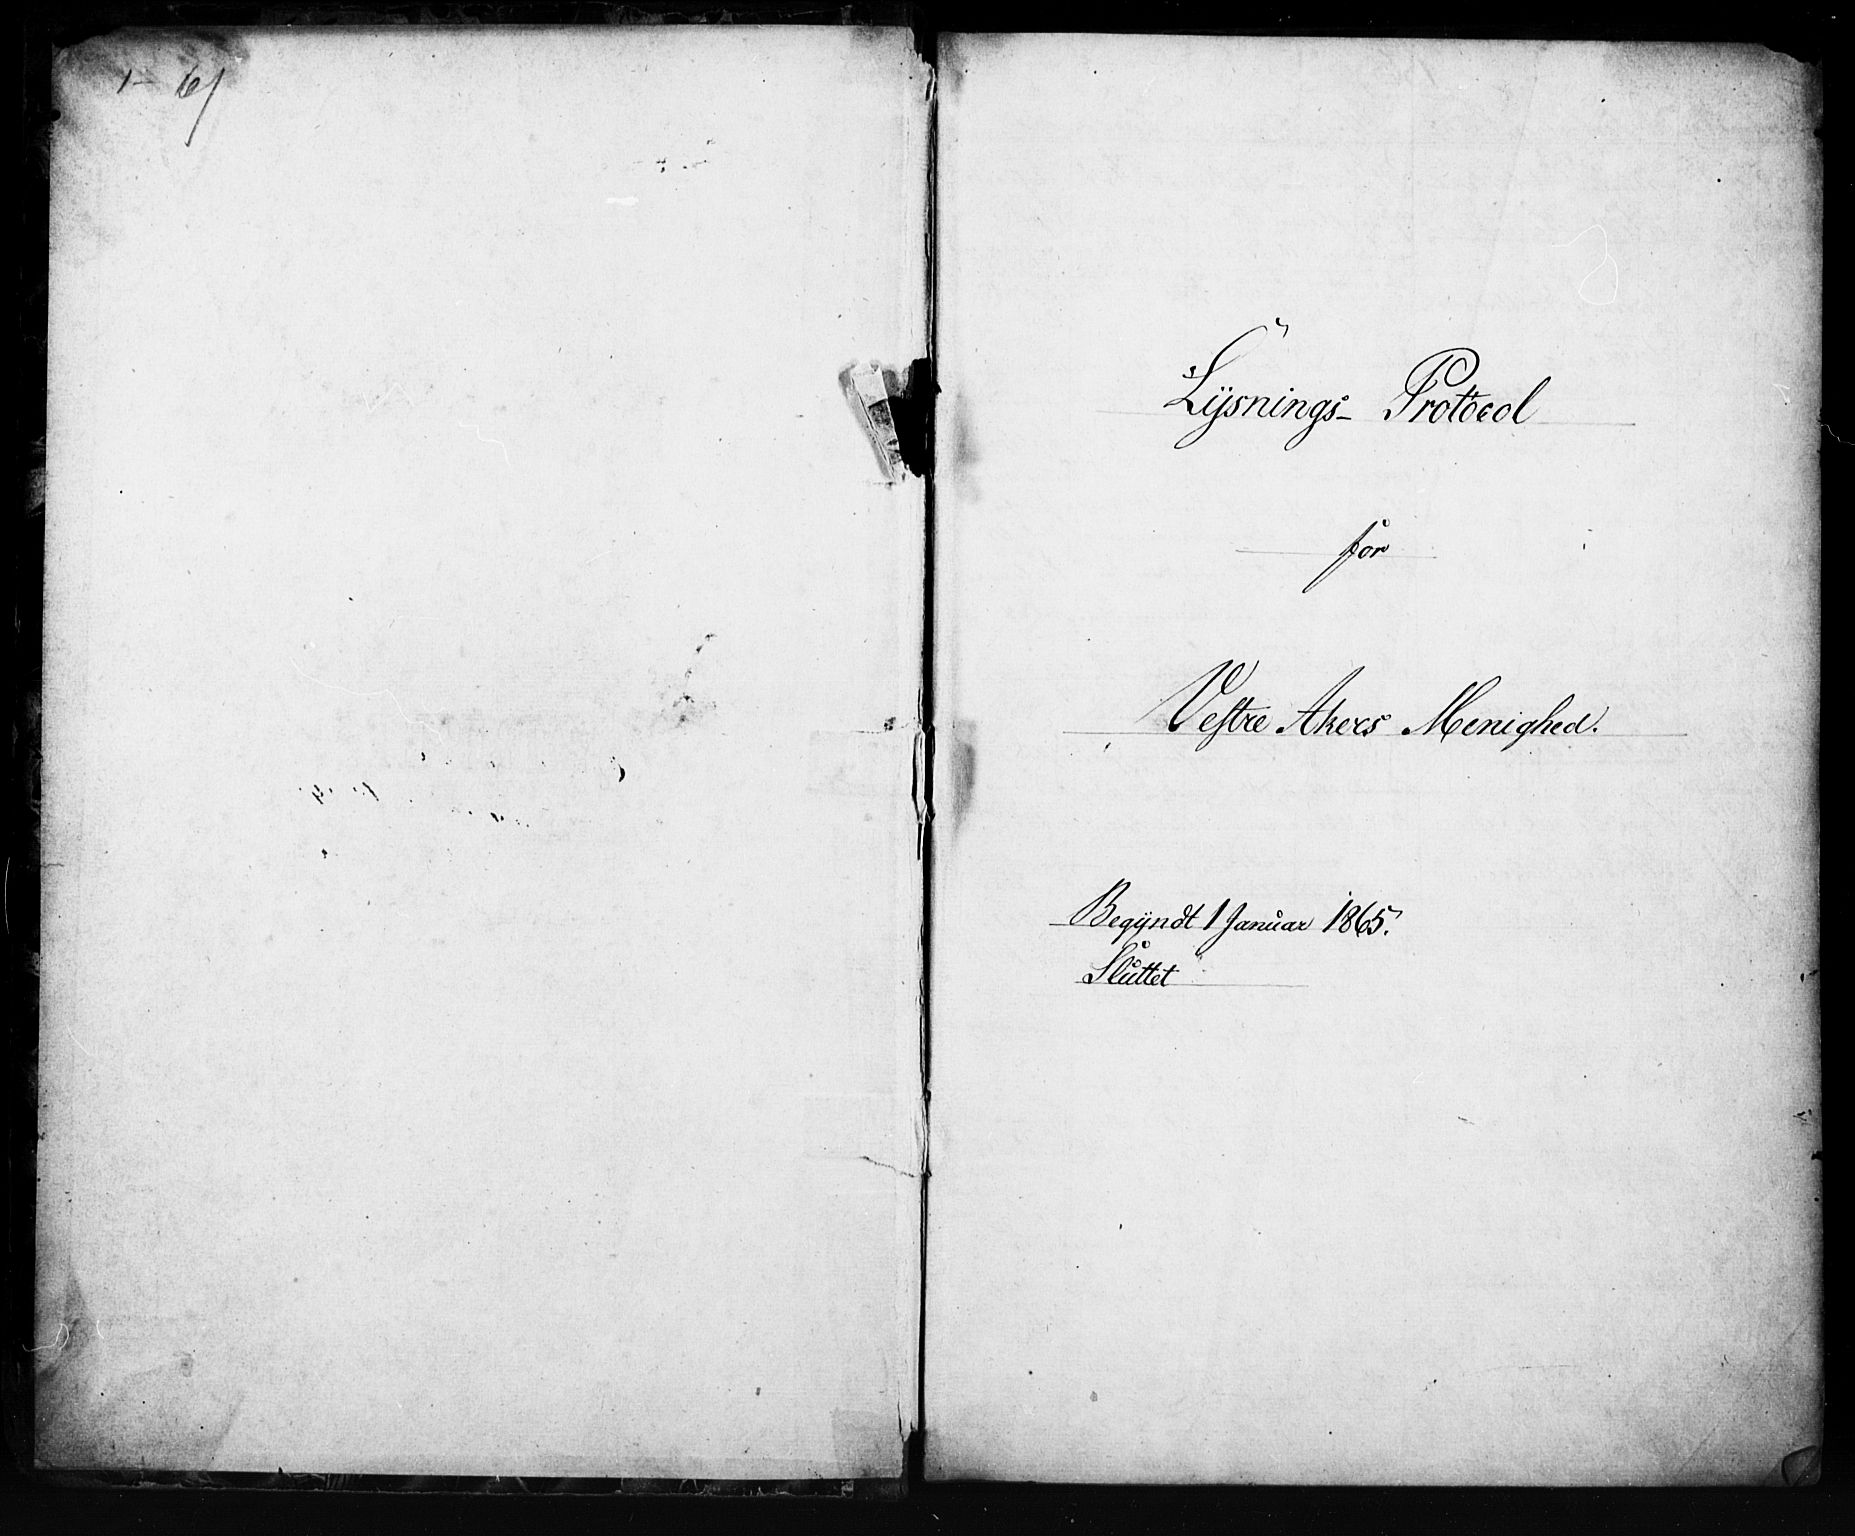 1 - 61
Lysnings- Protocol
for
Vestre Akers Menighed.
Begyndt 1 Januar 1865.
Sluttet